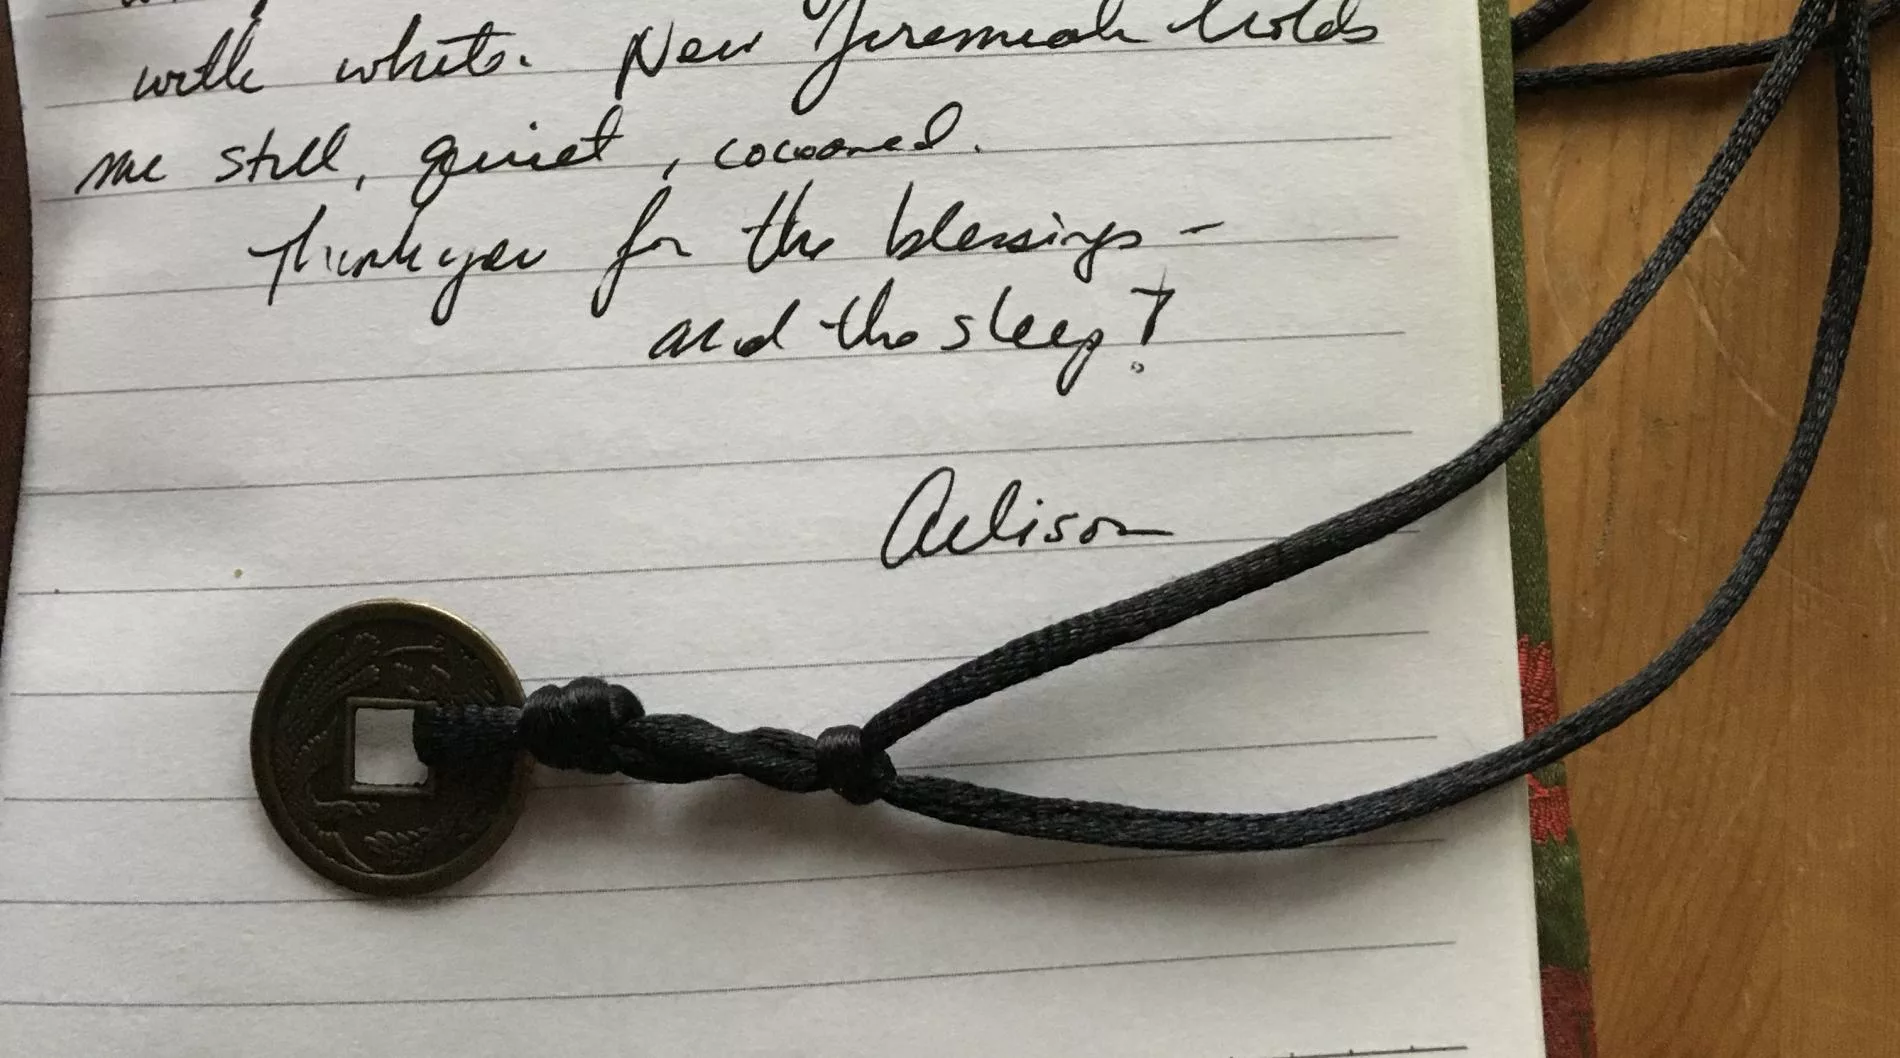 with white. New Jeremiah holds
me still, quiet, cocooned.
Thank you for the blessings –
and the sleep!
Alison